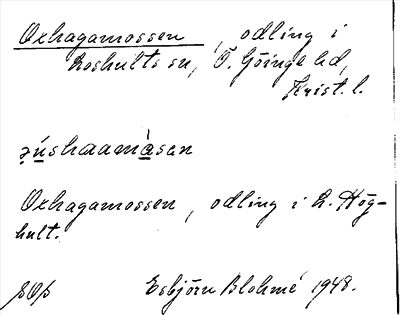 Oxhagamossen, odling i
Loshults sn, Ö. Göinge hd,
Krist. l.
Oxhagamossen, odling i L. Hög-
hult.
Esbjörn Blohmé 1948.